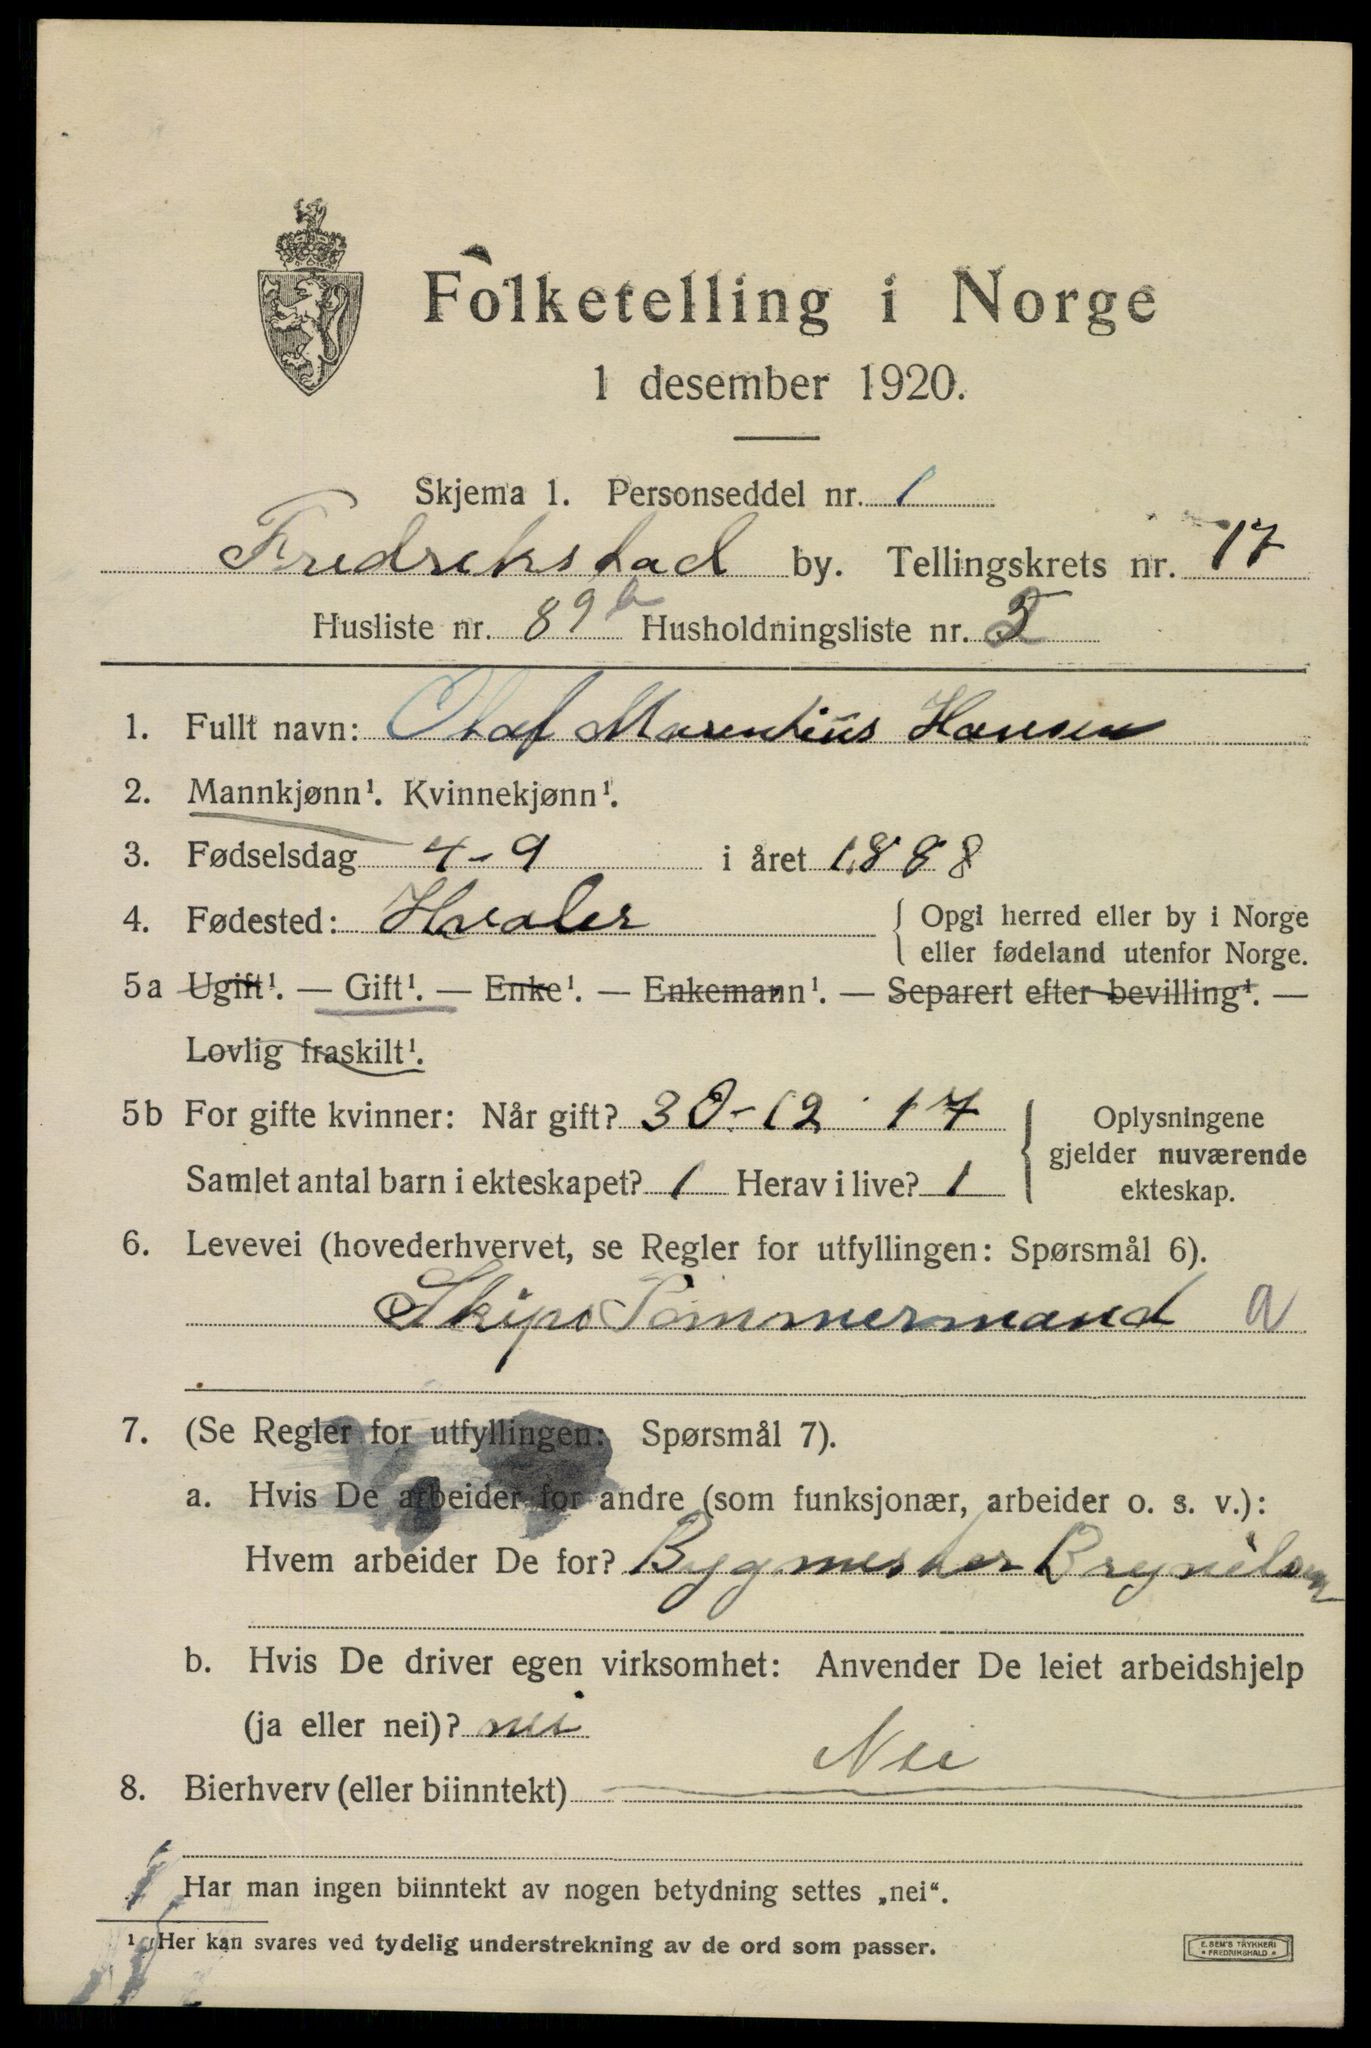 Folketelling i Norge
1 desember 1920.
Skjema 1. Personseddel nr. 1
Fredrikstad by. Tellingskrets nr. 17
Husliste nr. 89b Husholdningsliste nr. 2
1. Fullt navn: Olaf Marentius Hansen
2. Mannkjønn¹. Kvinnekjønn¹.
3. Fødselsdag 4-9 i året 1888
4. Fødested: Hvaler { Opgi herred eller by i Norge
eller fødeland utenfor Norge.
5a Ugift¹. — Gift¹. — Enke¹. — Enkemann¹. — Separert efter bevilling¹. —
Lovlig fraskilt¹.
5b For gifte kvinner: Når gift? 30-12 17 { Oplysningene
gjelder nuværende
Samlet antal barn i ekteskapet? 1 Herav i live? 1 ekteskap.
6. Levevei (hovederhvervet, se Regler for utfyllingen: Spørsmål 6).
Skips Tømmermand a
7. (Se Regler for utfyllingen: Spørsmål 7).
a. Hvis De arbeider for andre (som funksjonær, arbeider o. s. v.):
Hvem arbeider De for? Bygmester Brynilsen
b. Hvis De driver egen virksomhet: Anvender De leiet arbeidshjelp
(ja eller nei)? nei
8. Bierhverv (eller biinntekt) Nei
Har man ingen biinntekt av nogen betydning settes „nei“.
¹ Her kan svares ved tydelig understrekning av de ord som passer.
E. SEM'S TRYKKERI
* FREDRIKSHALD *